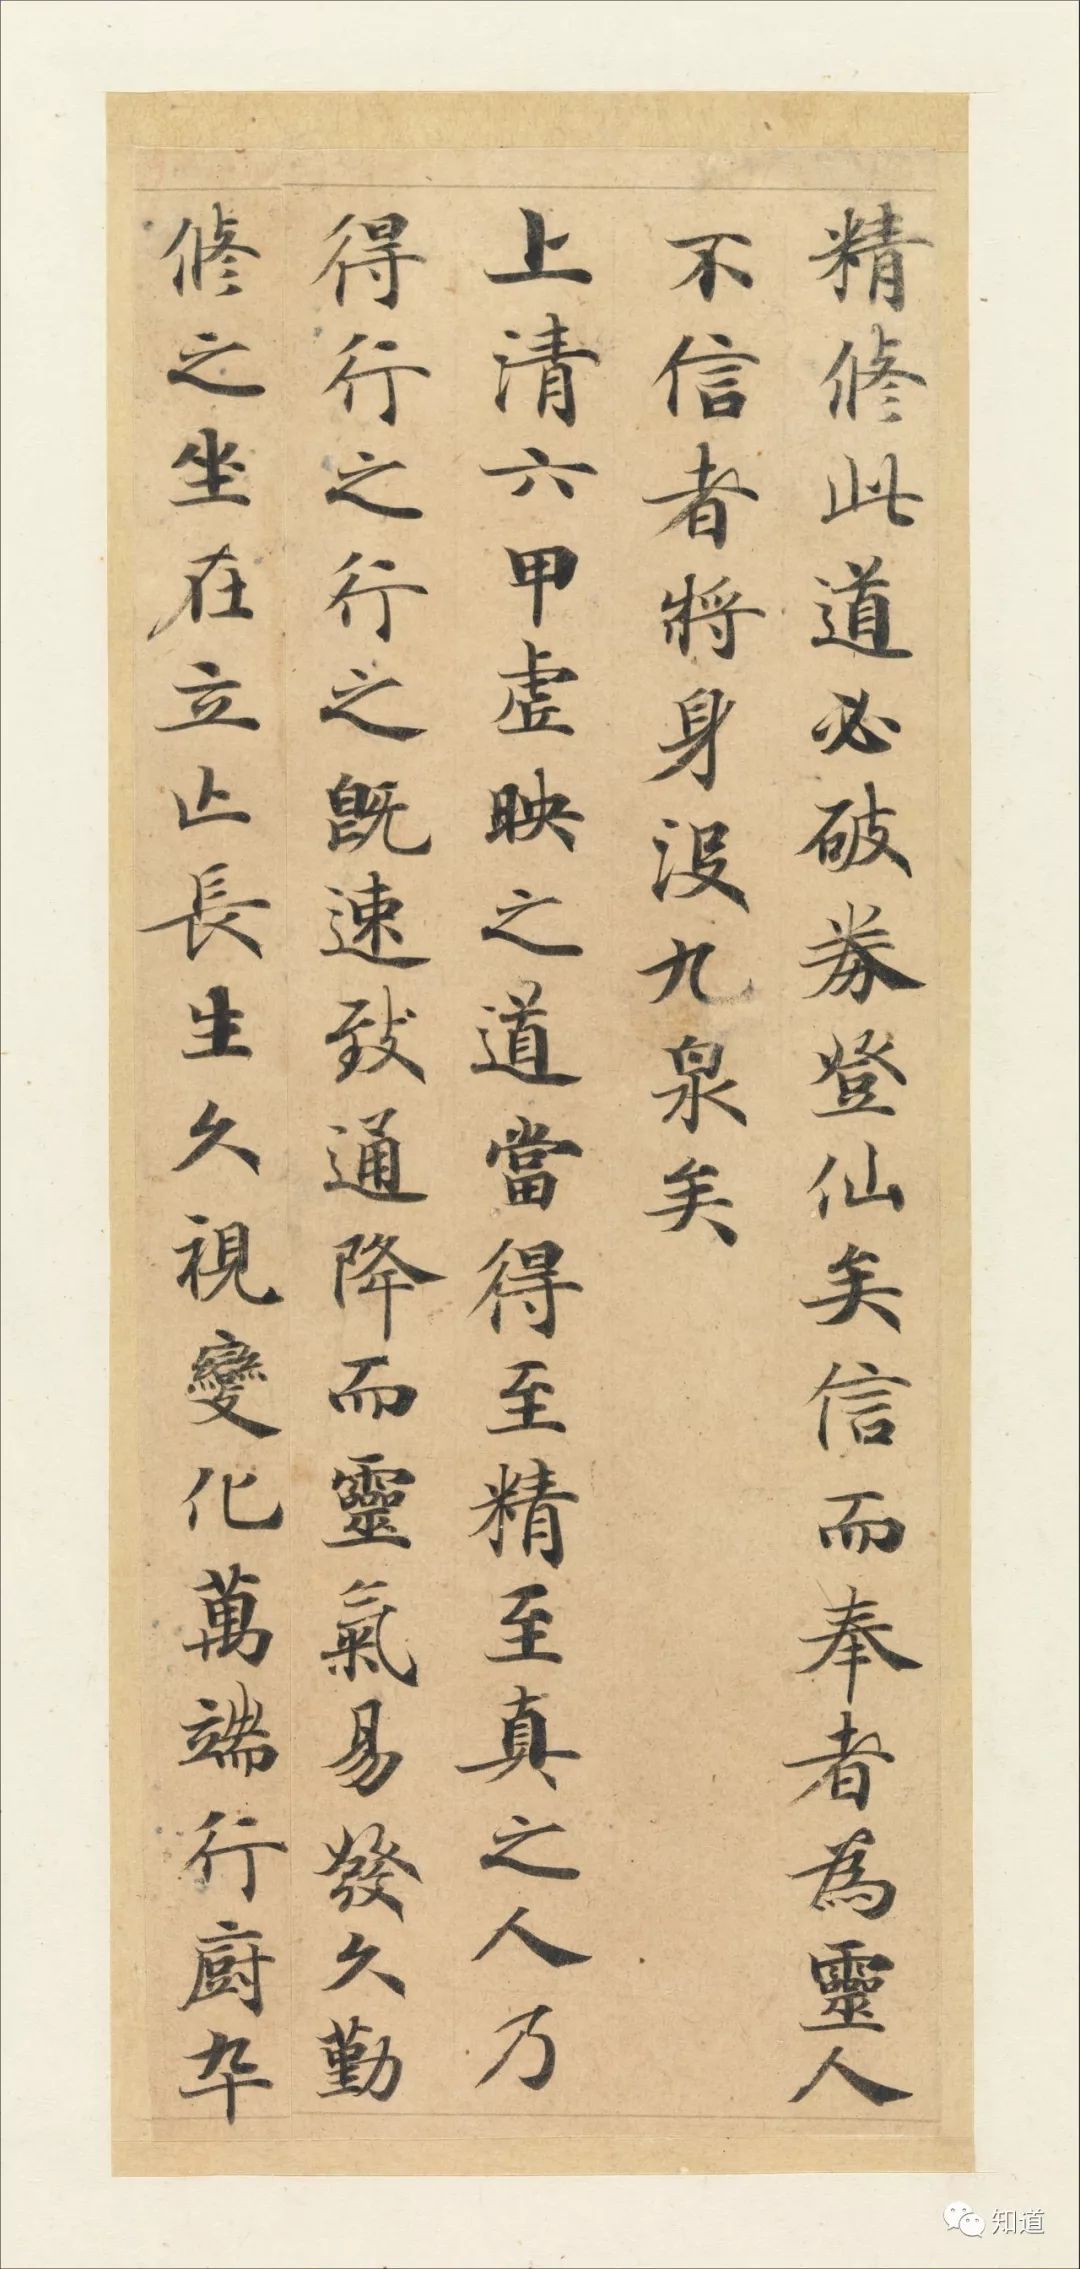 精脩此道必破券登仙矣信而奉者為靈人
不信者將身没九泉矣
上清六甲虛映之道當得至精至真之人乃
得行之行之既速致通降而靈氣易發久勤
脩之坐在立亡長生久視變化萬端行廚卒
知道